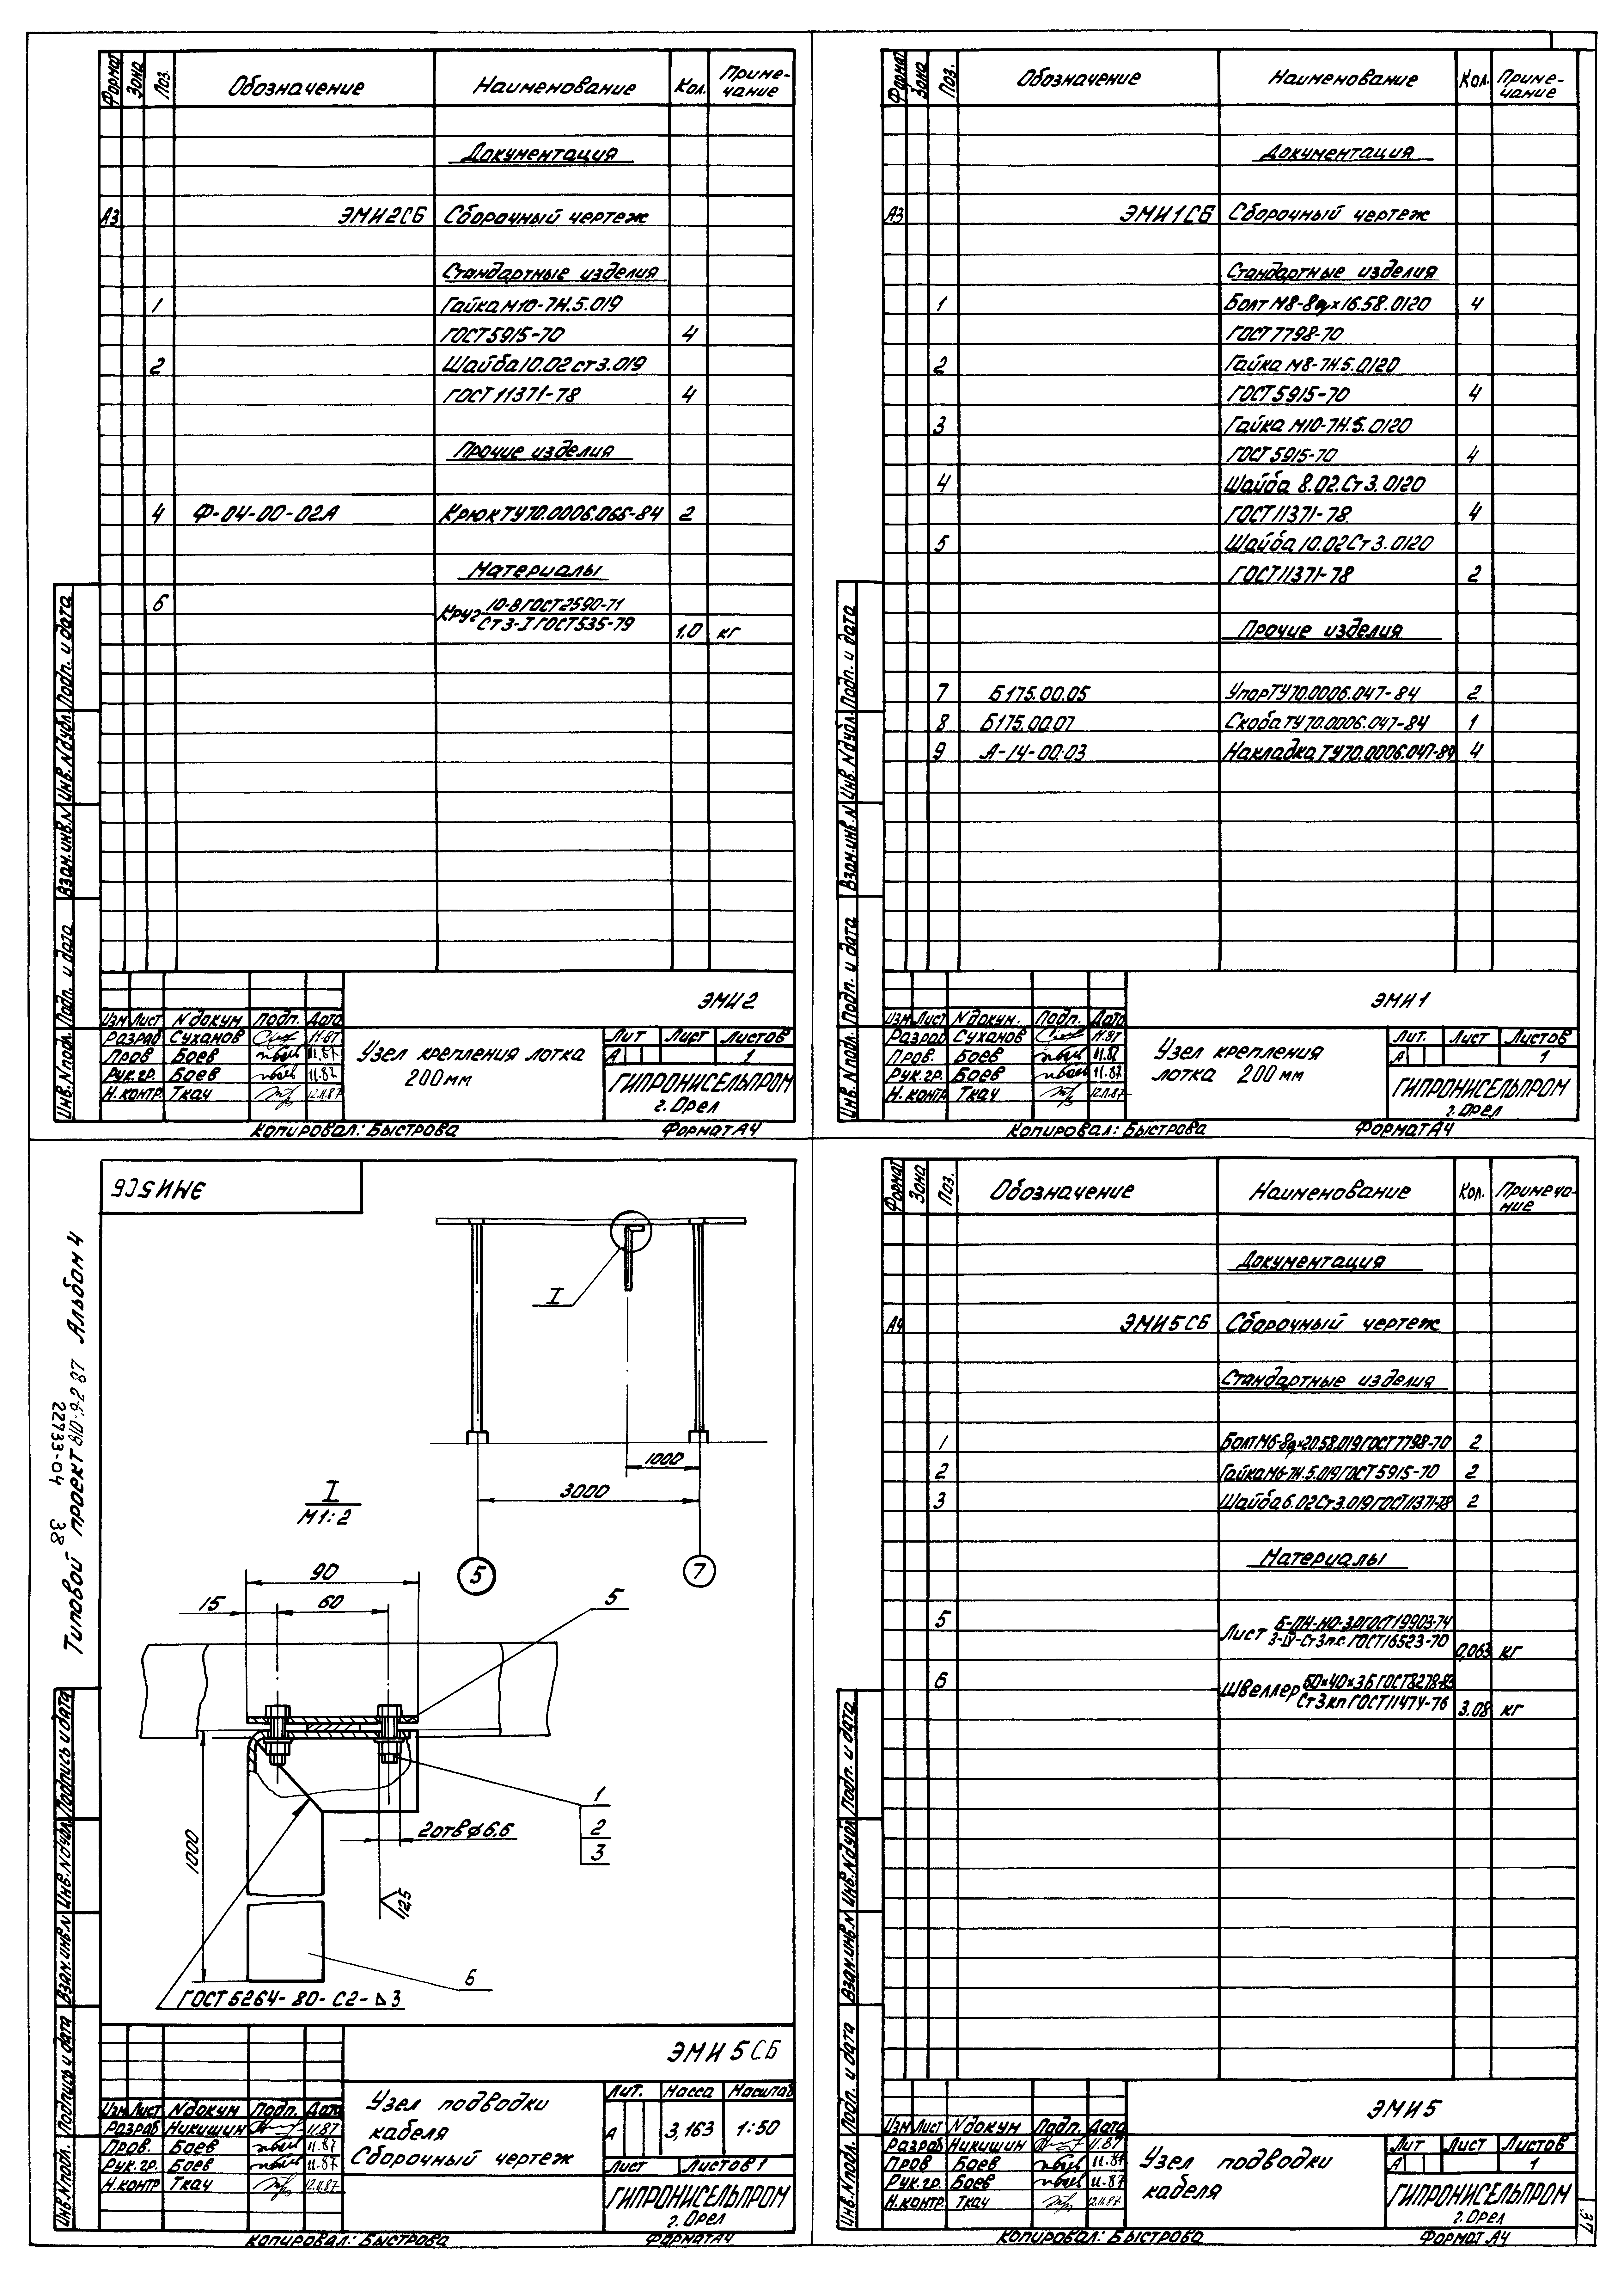 Формат Зона Поз. Обозначение Наименование Кол. Приме-
чание
Документация
А3 ЭМИ2СБ Сборочный чертеж
Стандартные изделия
1 Гайка М10-7Н.5.019
ГОСТ 5915-70 4
2 Шайба 10.02 ст 3.019
ГОСТ 11371-78 4
Прочие изделия
4 Ф-04-00-02А Крюк ТУ70.0006.065-84 2
Материалы
6 Круг 10-В ГОСТ 2590-71
Ст 3-I ГОСТ 535-79 1,0 кг
Инв. N подл. Подп. и дата Взам. инв. N Инв. N дубл. Подп. и дата
ЭМИ2
Изм Лист N докум Подп. Дата
Разраб Суханов 11.87
Пров Боев 11.87
Рук. гр. Боев 11.87
Н. контр. Ткач 12.11.87
Узел крепления лотка
200 мм
Лит Лист Листов
А 1
ГИПРОНИСЕЛЬПРОМ
г. Орел
Копировал: Быстрова Формат А4
Формат Зона Поз. Обозначение Наименование Кол. Приме-
чание
Документация
А3 ЭМИ1СБ Сборочный чертеж
Стандартные изделия
1 Болт М8-8g×16.58.0120 4
ГОСТ 7798-70
2 Гайка М8-7Н.5.0120
ГОСТ 5915-70 4
3 Гайка М10-7Н.5.0120
ГОСТ 5915-70 4
4 Шайба 8.02.Ст 3.0120
ГОСТ 11371-78 4
5 Шайба 10.02 Ст 3.0120
ГОСТ 11371-78 2
Прочие изделия
7 Б175.00.05 Упор ТУ70.0006.047-84 2
8 Б175.00.07 Скоба ТУ70.0006.047-84 1
9 А-14-00.03 Накладка ТУ70.0006.047-84 4
Инв. N подл. Подп. и дата Взам. инв. N Инв. N дубл. Подп. и дата
ЭМИ1
Изм Лист N докум. Подп. Дата
Разраб Суханов 11.87
Пров. Боев 11.87
Рук. гр. Боев 11.87
Н. контр Ткач 12.11.87
Узел крепления
лотка 200 мм
Лит. Лист Листов
А 1
ГИПРОНИСЕЛЬПРОМ
г. Орел
Копировал: Быстрова Формат А4
ЭМИ5СБ
Типовой проект 810-9-2.87 Альбом 4
22733-04 38
I
1000
3000
5 7
I
М1:2
90
15 60
5
1
2
3
2отв ⌀6,6
12,5
1000
6
ГОСТ 5264-80-С2-⊿3
Инв. N подл. Подпись и дата Взам. инв. N Инв. N дубл. Подпись и дата
ЭМИ5СБ
Изм Лист N докум Подп. Дата
Разраб Никишин 11.87
Пров. Боев 11.87
Рук. гр. Боев 11.87
Н. контр Ткач 12.11.87
Узел подводки
кабеля
Сборочный чертеж
Лит. Масса Масштаб
А 3,163 1:50
Лист Листов 1
ГИПРОНИСЕЛЬПРОМ
г. Орел
Копировал: Быстрова Формат А4
Формат Зона Поз. Обозначение Наименование Кол. Примеча-
ние
Документация
А4 ЭМИ5СБ Сборочный чертеж
Стандартные изделия
1 Болт М6-8g×20.58.019 ГОСТ 7798-70 2
2 Гайка М6-7Н.5.019 ГОСТ 5915-70 2
3 Шайба 6.02 Ст 3.019 ГОСТ 11371-78 2
Материалы
5 Лист Б-ПН-НО-3.0 ГОСТ 19903-74
3-IV-Ст 3пс. ГОСТ 16523-70 0,063 кг
6 Швеллер 60×40×3 Б ГОСТ 8278-83
Ст 3кп ГОСТ 11474-76 3.08 кг
Инв. N подл. Подп. и дата Взам. инв. N Инв. N дубл. Подп. и дата
ЭМИ5
Изм Лист N докум Подп. Дата
Разраб Никишин 11.87
Пров Боев 11.87
Рук. гр. Боев 11.87
Н. контр. Ткач 12.11.87
Узел подводки
кабеля
Лит Лист Листов
А 1
ГИПРОНИСЕЛЬПРОМ
г. Орел
Копировал: Быстрова Формат А4
37